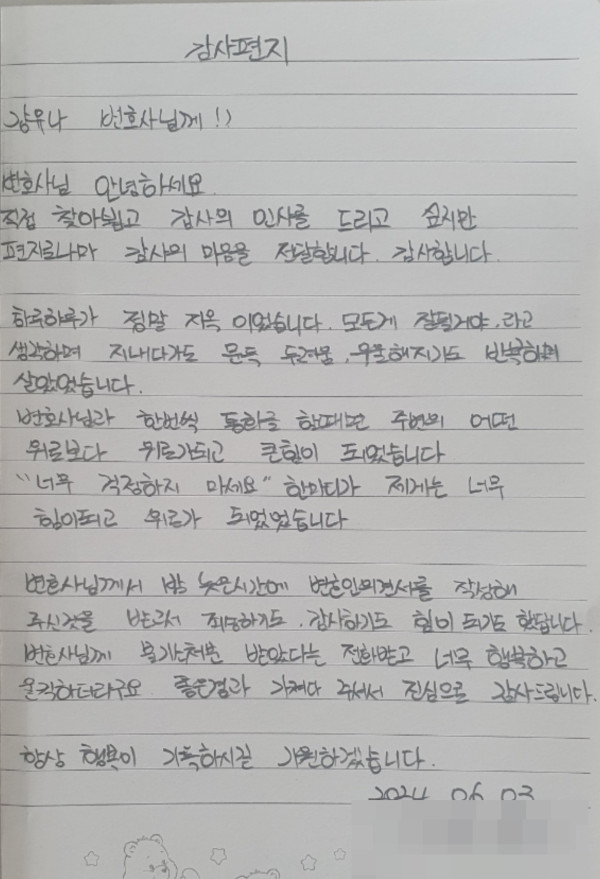 감사편지
강유나 변호사님께!)
변호사님 안녕하세요
직접 찾아뵙고 감사의 인사를 드리고 싶지만
편지로나마 감사의 마음을 전달합니다. 감사합니다.
하루하루가 정말 지옥 이었습니다. 모두게 잘될거야. 라고
생각하며 지내다가도 문득 두려움, 우울해지기도 반복하며
살았었습니다.
변호사님과 한번씩 통화를 할때면 주변의 어떤
위로보다 위로가되고 큰힘이 되었습니다
"너무 걱정하지 마세요" 한마디가 제게는 너무
힘이되고 위로가 되었었습니다
변호사님께서 밤 늦은시간에 변호인의견서를 작성해
주신것을 받고서 죄송하기도, 감사하기도 힘이 되기도 했답니다.
변호사님께 불기소처분 받았다는 전화받고 너무 행복하고
울컥하더라구요 좋은결과 가져다 주셔서 진심으로 감사드립니다.
항상 행복이 가득하시길 기원하겠습니다.
2024 06 03